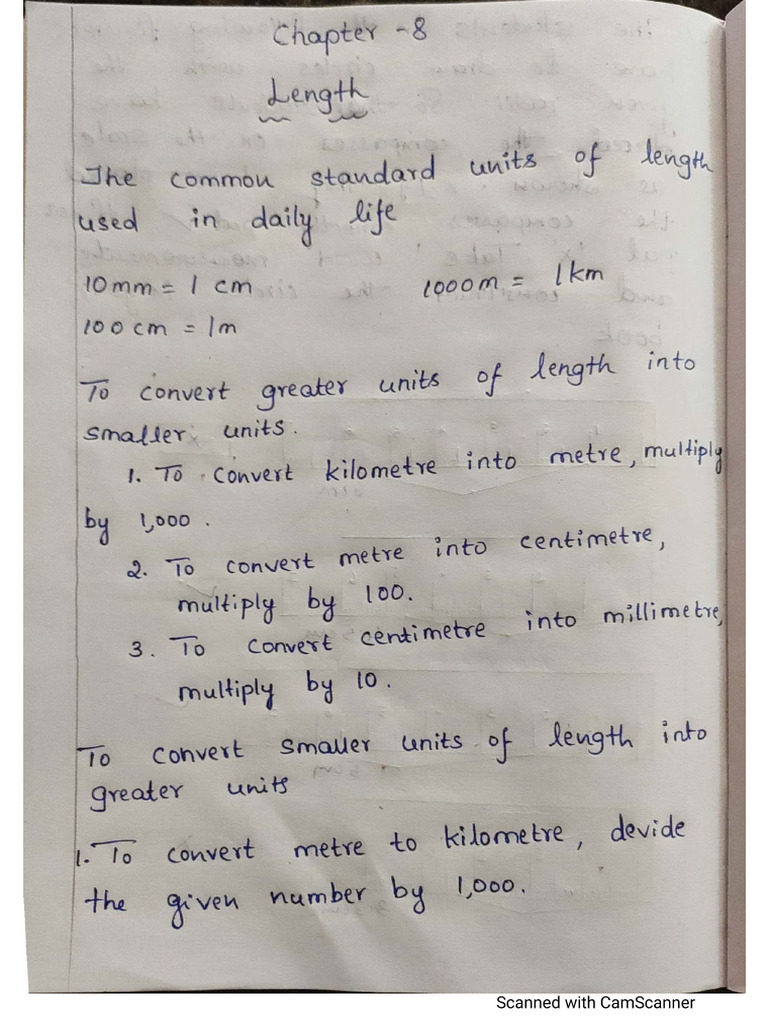 Chapter - 8
Length
The common standard units of length
used in daily life
10mm = 1 cm 1000m = 1km
100 cm = 1m
To convert greater units of length into
smaller units.
1. To convert kilometre into metre, multiply
by 1,000.
2. To convert metre into centimetre,
multiply by 100.
3. To convert centimetre into millimetre,
multiply by 10.
To convert smaller units of length into
greater units
1. To convert metre to kilometre, devide
the given number by 1,000.
Scanned with CamScanner